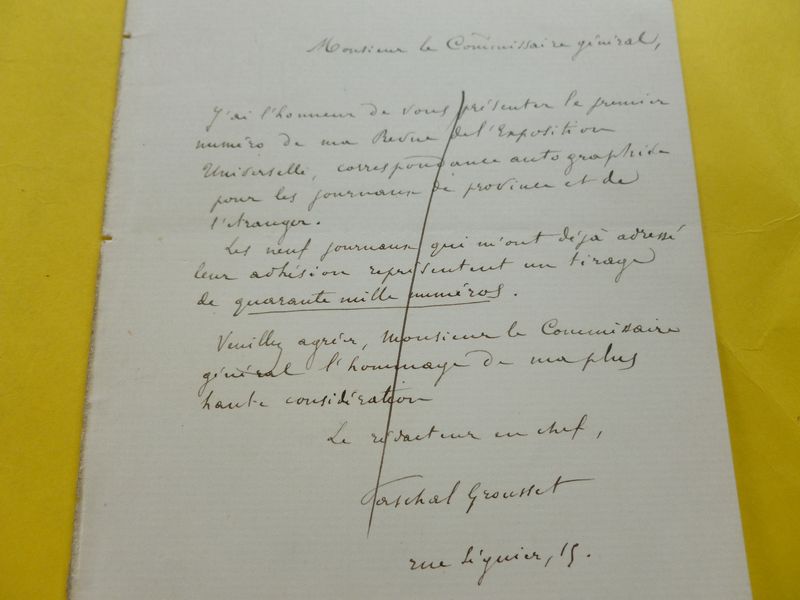 Monsieur le Commissaire général,
J'ai l'honneur de vous présenter le premier
numéro de ma Revue de l'Exposition
Universelle, correspondance autographiée
pour les journaux de province et de
l'étranger.
Les neuf journaux qui m'ont déjà adressé
leur adhésion représentent un tirage
de quarante mille numéros.
Veuillez agréer, Monsieur le Commissaire
général l'hommage de ma plus
haute considération
Le rédacteur en chef,
Paschal Grousset
rue Séguier, 15.